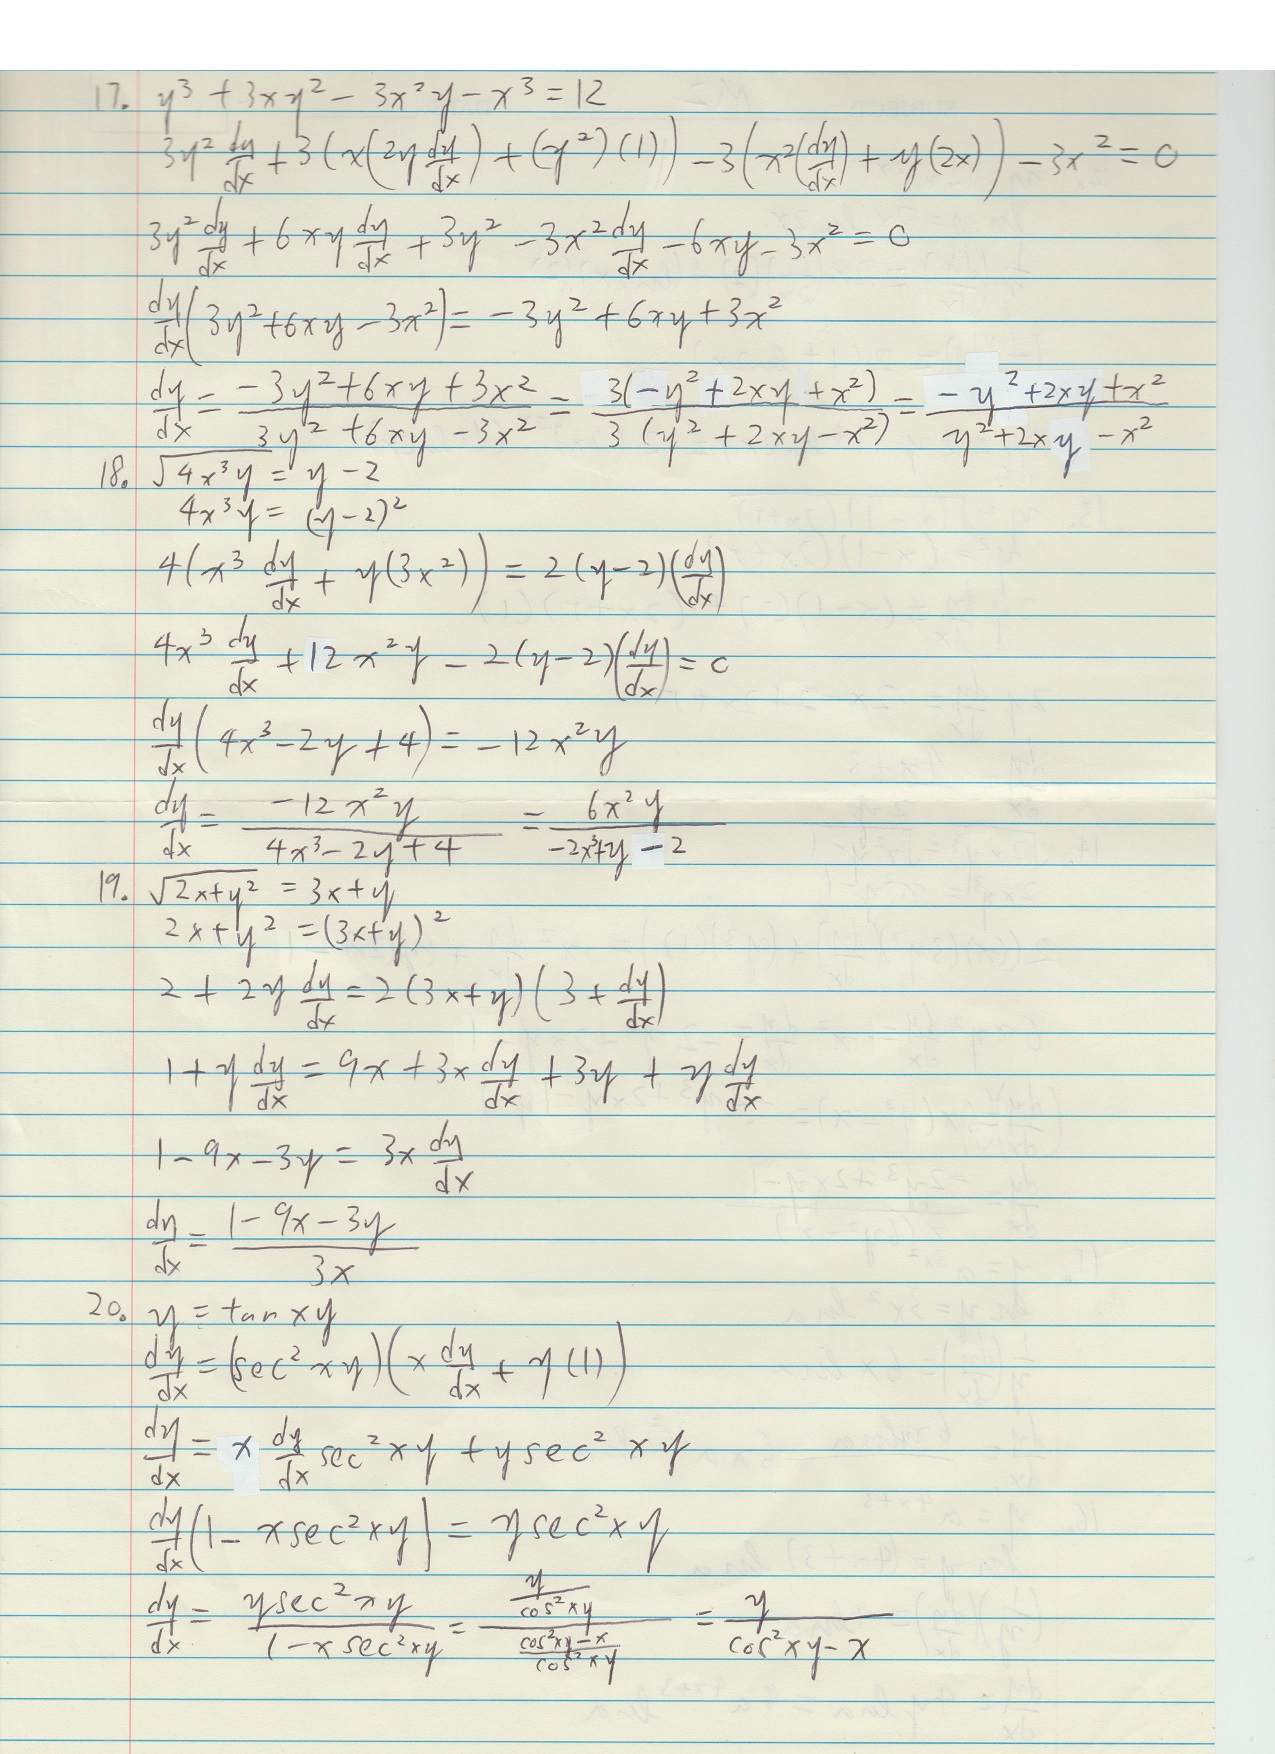 17. y³ + 3xy² - 3x²y - x³ = 12
3y² dy/dx + 3(x(2y dy/dx) + (y²)(1)) - 3(x²(dy/dx) + y(2x)) - 3x² = 0
3y² dy/dx + 6xy dy/dx + 3y² - 3x² dy/dx - 6xy - 3x² = 0
dy/dx (3y² + 6xy - 3x²) = -3y² + 6xy + 3x²
dy/dx = (-3y² + 6xy + 3x²)/(3y² + 6xy - 3x²) = 3(-y² + 2xy + x²)/3(y² + 2xy - x²) = (-y² + 2xy + x²)/(y² + 2xy - x²)
18. √(4x³y) = y - 2
4x³y = (y-2)²
4(x³ dy/dx + y(3x²)) = 2(y-2)(dy/dx)
4x³ dy/dx + 12x²y - 2(y-2)(dy/dx) = 0
dy/dx (4x³ - 2y + 4) = -12x²y
dy/dx = -12x²y/(4x³ - 2y + 4) = 6x²y/(-2x³+y - 2)
19. √(2x+y²) = 3x+y
2x+y² = (3x+y)²
2 + 2y dy/dx = 2(3x+y)(3 + dy/dx)
1 + y dy/dx = 9x + 3x dy/dx + 3y + y dy/dx
1 - 9x - 3y = 3x dy/dx
dy/dx = (1 - 9x - 3y)/3x
20. y = tan xy
dy/dx = (sec² xy)(x dy/dx + y(1))
dy/dx = x dy/dx sec² xy + y sec² xy
dy/dx (1 - x sec² xy) = y sec² xy
dy/dx = y sec² xy/(1 - x sec² xy) = (y/cos² xy)/((cos² xy - x)/cos² xy) = y/(cos² xy - x)